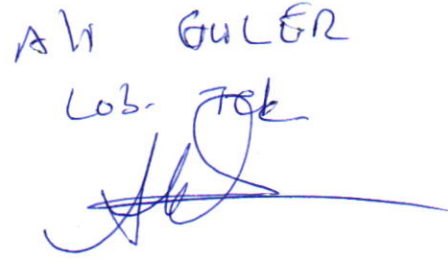 Ali GULER
Lab. Tek